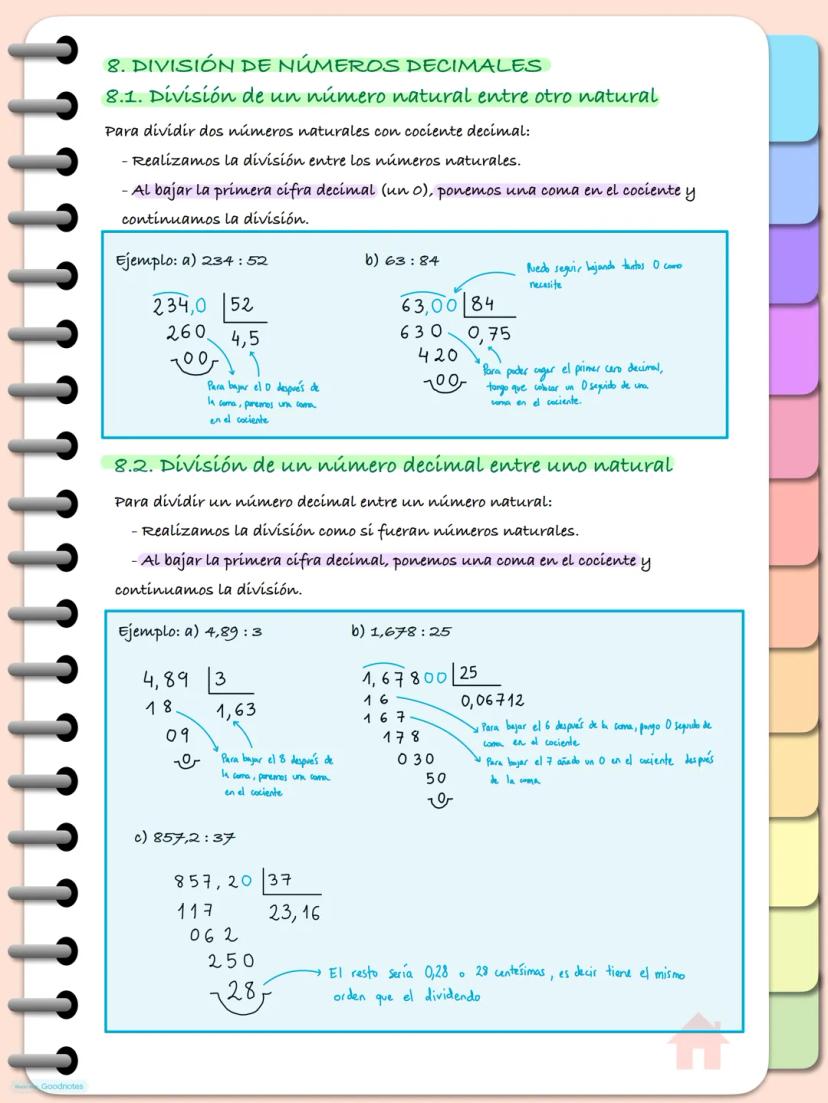 8. DIVISIÓN DE NÚMEROS DECIMALES
8.1. División de un número natural entre otro natural
Para dividir dos números naturales con cociente decimal:
- Realizamos la división entre los números naturales.
- Al bajar la primera cifra decimal (un 0), ponemos una coma en el cociente y
continuamos la división.
Ejemplo: a) 234 : 52
234,0 52
260 4,5
00
Para bajar el 0 después de
la coma, ponemos una coma
en el cociente
b) 63 : 84
Puedo seguir bajando tantos 0 como
necesite
63,00 84
630 0,75
420
00
Para poder coger el primer cero decimal,
tengo que colocar un 0 seguido de una
coma en el cociente.
8.2. División de un número decimal entre uno natural
Para dividir un número decimal entre un número natural:
- Realizamos la división como si fueran números naturales.
- Al bajar la primera cifra decimal, ponemos una coma en el cociente y
continuamos la división.
Ejemplo: a) 4,89 : 3
4,89 3
18 1,63
09
0
Para bajar el 8 después de
la coma, ponemos una coma
en el cociente
b) 1,678 : 25
1,67800 25
16 0,06712
167
178
030
50
0
Para bajar el 6 después de la coma, pongo 0 seguido de
coma en el cociente
Para bajar el 7 añado un 0 en el cociente después
de la coma
c) 857,2 : 37
857,20 37
117 23,16
062
250
28
El resto sería 0,28 o 28 centésimas, es decir tiene el mismo
orden que el dividendo
Goodnotes